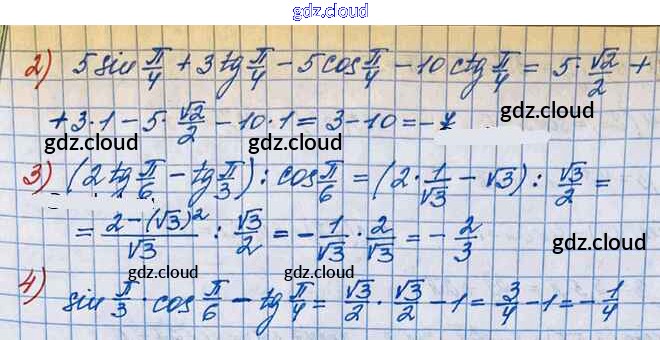 gdz.cloud
gdz.cloud
2) 5 sin π/4 + 3 tg π/4 − 5 cos π/4 − 10 ctg π/4 = 5 · √2/2 +
+ 3·1 − 5 · √2/2 − 10·1 = 3 − 10 = −7
gdz.cloud gdz.cloud gdz.cloud
3) (2 tg π/6 − tg π/3) : cos π/6 = (2 · 1/√3 − √3) : √3/2 =
= (2 − (√3)²)/√3 : √3/2 = − 1/√3 · 2/√3 = − 2/3
gdz.cloud
gdz.cloud gdz.cloud
4) sin π/3 · cos π/6 − tg π/4 = √3/2 · √3/2 − 1 = 3/4 − 1 = − 1/4